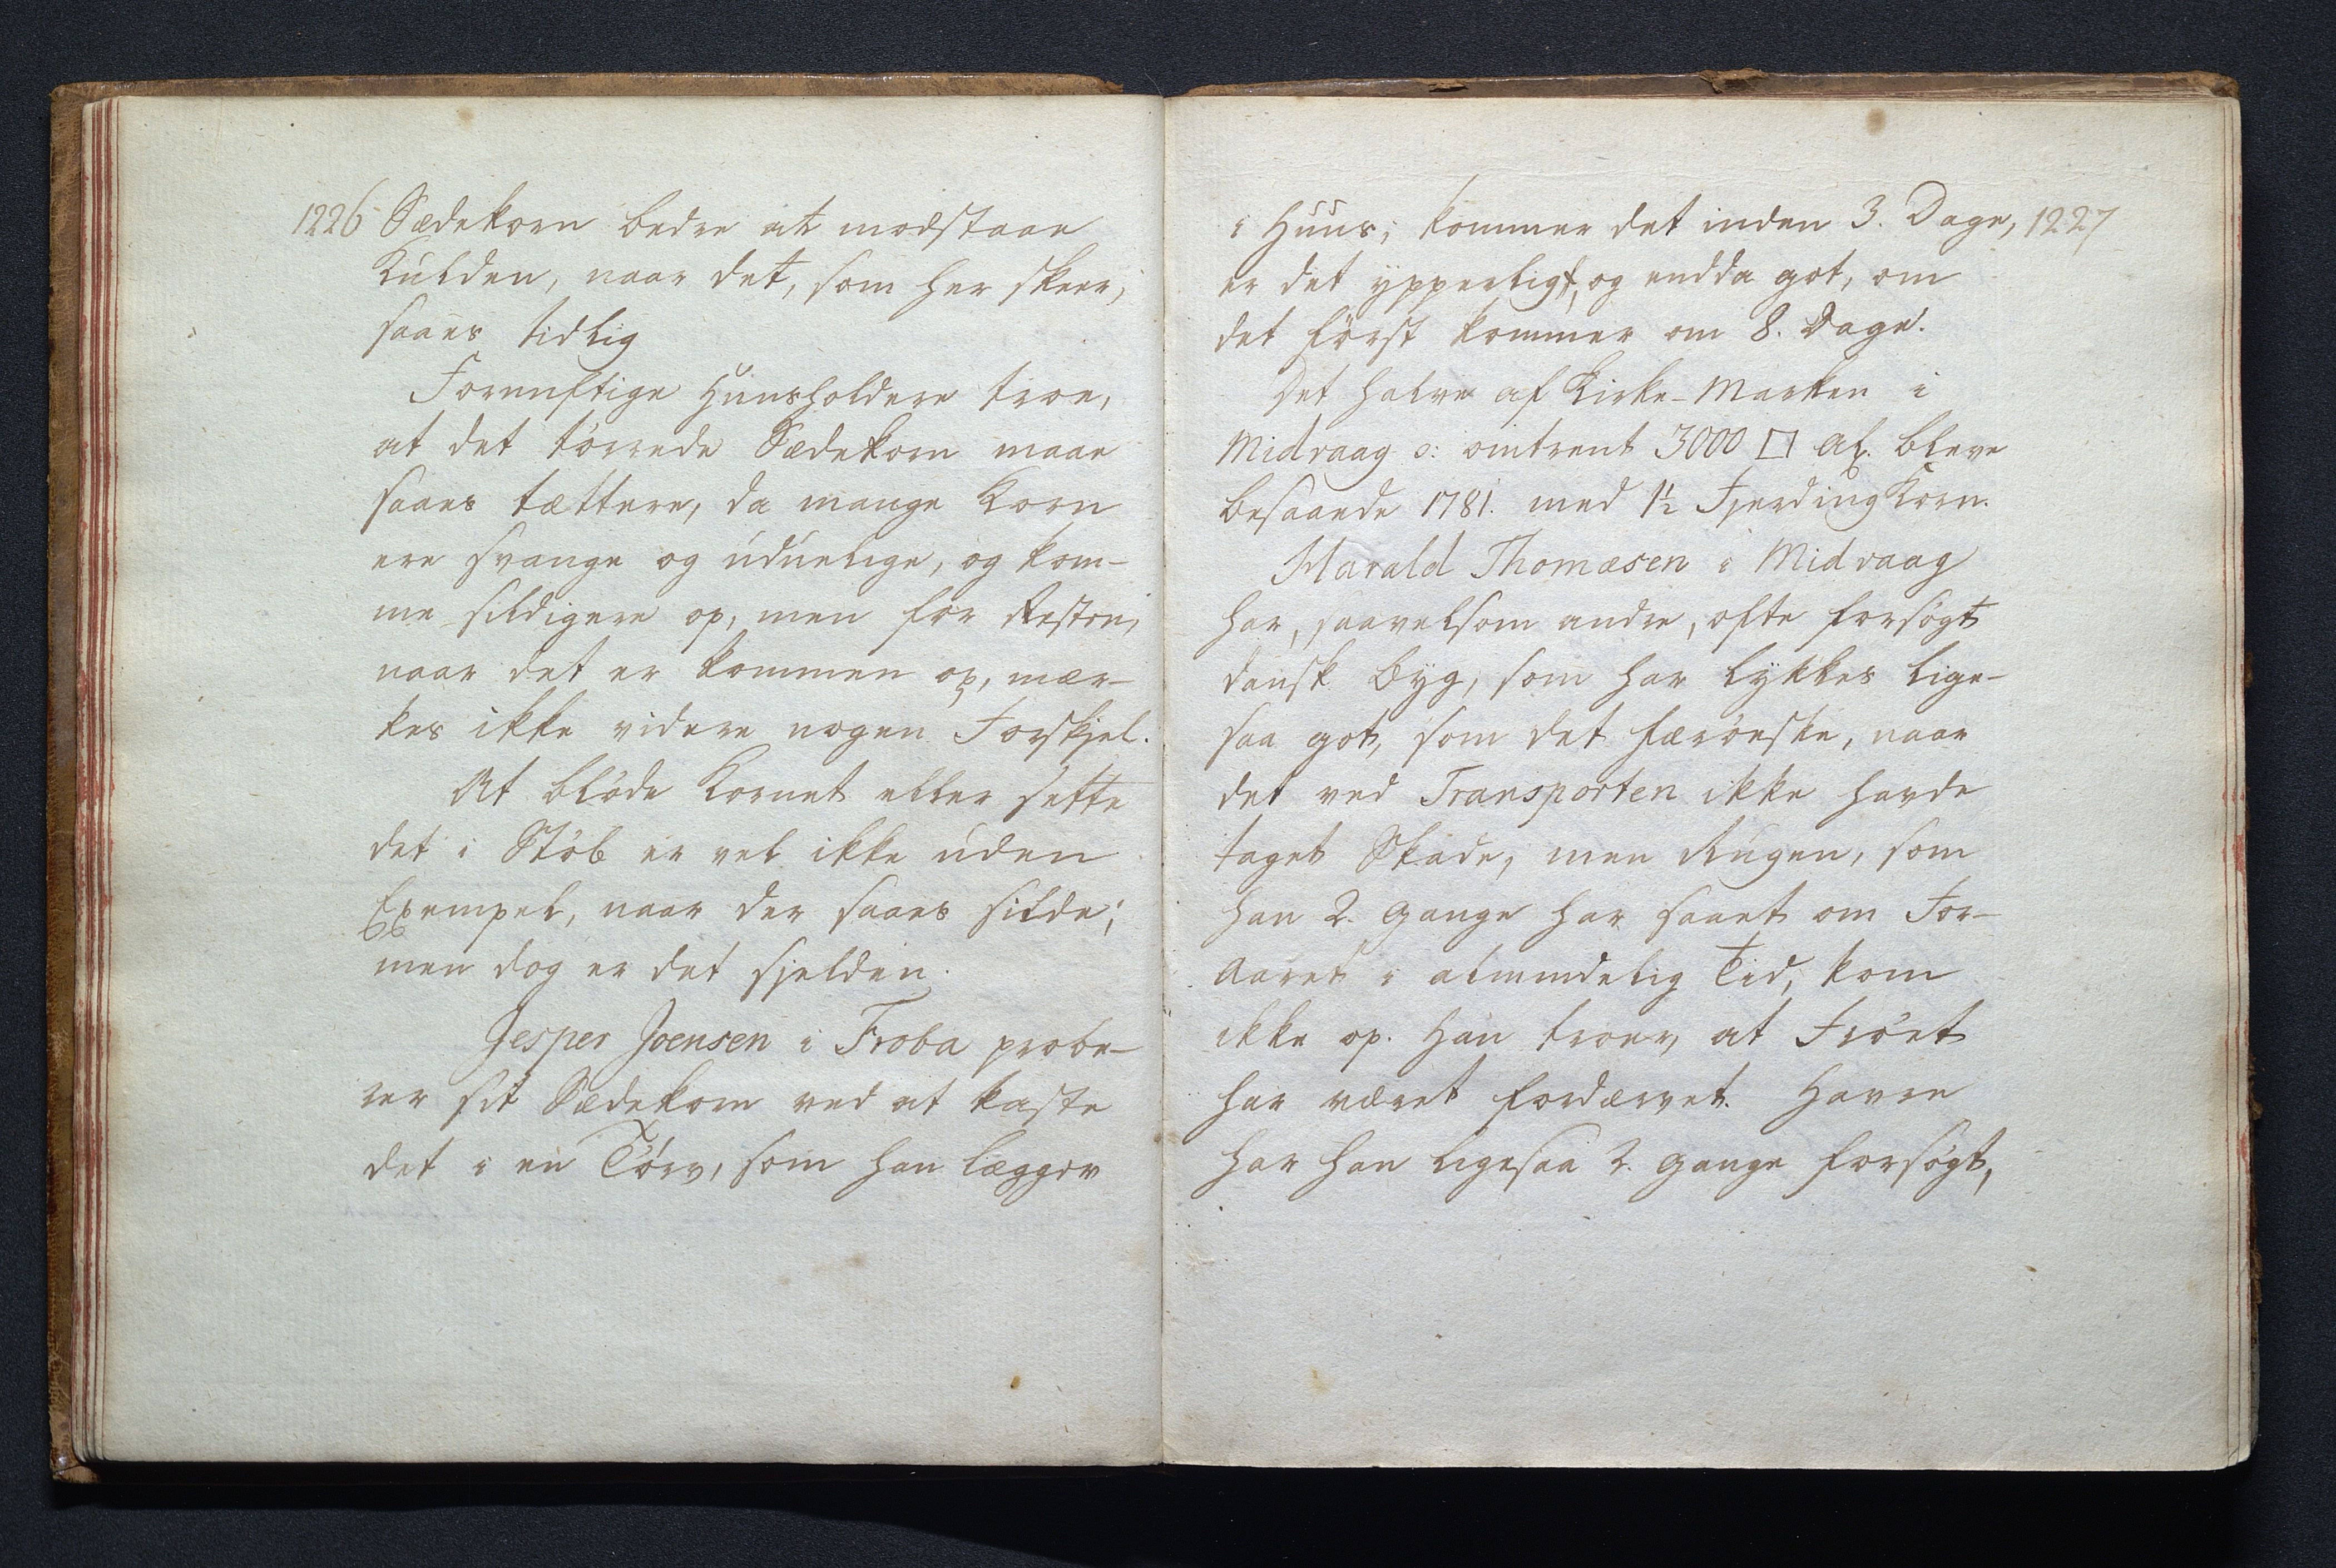 1226 Sædekorn bedre at modstaae
Kulden, naar det, som her skeer,
saaes tidlig
Fornuftige Huusholdere troe,
at det törrede Sædekorn maae
saaes tættere, da mange Korn
ere svange og udúelige, og kom-
me sildigere op, men for Resten,
naar det er kommen op, mær-
kes ikke videre nogen Forskjel.
At blöde Kornet eller sette
det i Stöb er vel ikke uden
Exempel, naar der saaes silde;
men dog er det sjelden.
Jesper Joensen i Froba probe-
rer sit Sædekorn ved at kaste
det i en Törv, som han lægger
i Huus; kommer det inden 3. Dage, 1227
er det ypperligt, og endda got, om
det först kommer om 8. Dage.
Det halve af Kirke-Marken i
Midvaag ɔ: omtrent 3000 □ Al. bleve
besaaede 1781. med 1½ Fjerding Korn.
Harald Thomæsen i Midvaag
har, saavelsom andre, ofte forsögt
dansk Byg, som har lykkes lige-
saa got, som det færöeske, naar
det ved Transporten ikke havde
taget Skade, men Rugen, som
han 2. Gange har saaet om For-
aaret i almindelig Tid, kom
ikke op. Han troer, at Fröet
har været fordærvet. Havre
har han ligesaa 2. Gange forsögt,